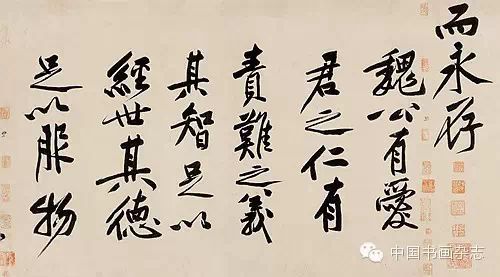 而永存
魏公有愛
君之仁有
責難之義
其智足以
經世其德
足以服物
中国书画杂志